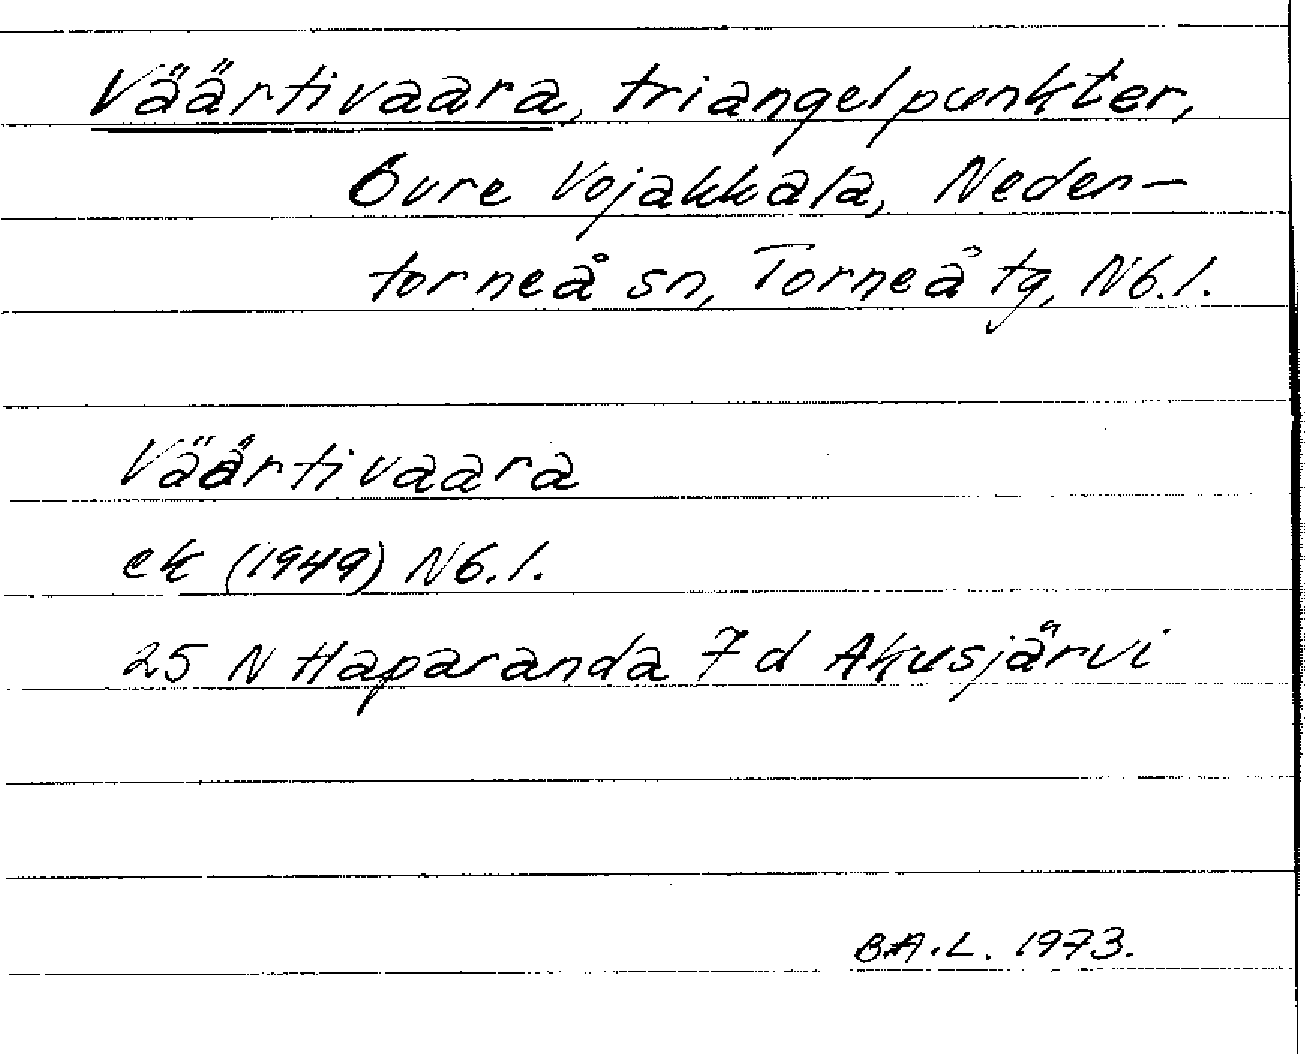 Väärtivaara, triangelpunkter,
Övre Vojakkala, Neder-
torneå sn, Torneå tg, Nb.l.
Väärtivaara
ek (1949) Nb.l.
25 N Haparanda 7d Akusjärvi
B.A.L. 1973.